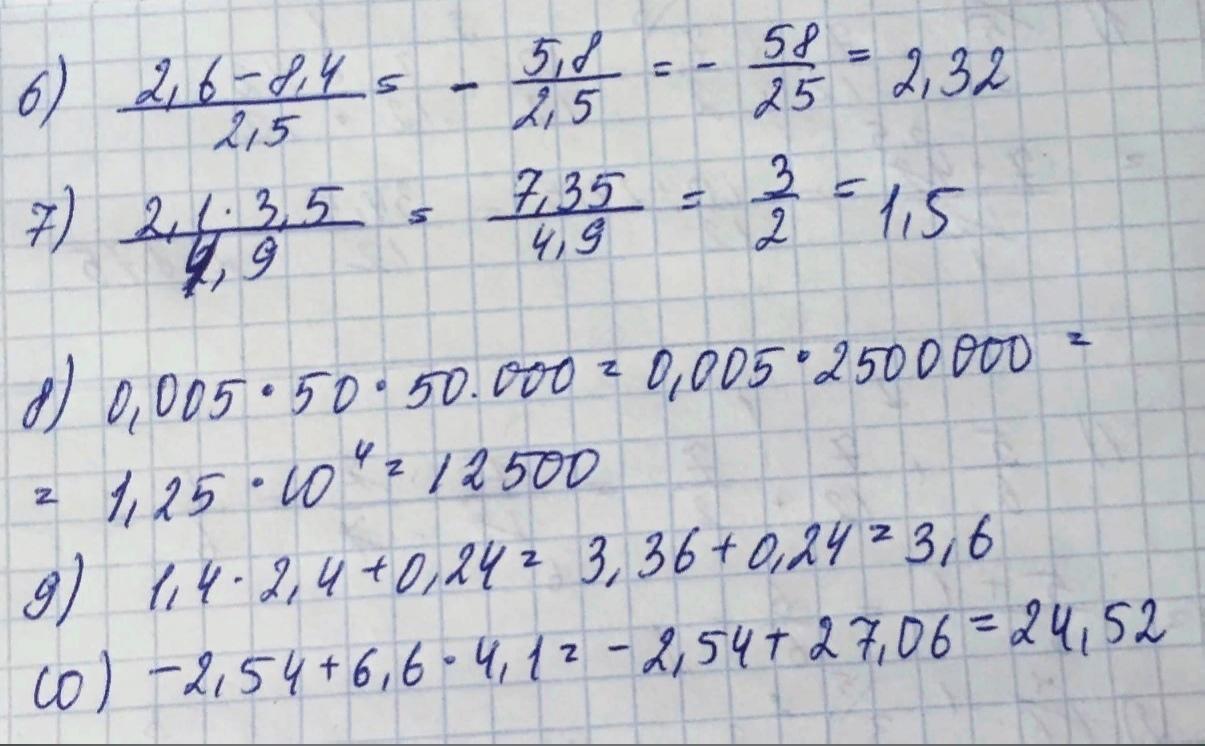 6) (2,6-8,4)/2,5 = - 5,8/2,5 = - 58/25 = 2,32
7) (2,1·3,5)/4,9 = 7,35/4,9 = 3/2 = 1,5
8) 0,005·50·50.000 = 0,005·2500000 =
= 1,25·10⁴ = 12500
9) 1,4·2,4+0,24 = 3,36+0,24 = 3,6
10) -2,54+6,6·4,1 = -2,54+27,06 = 24,52